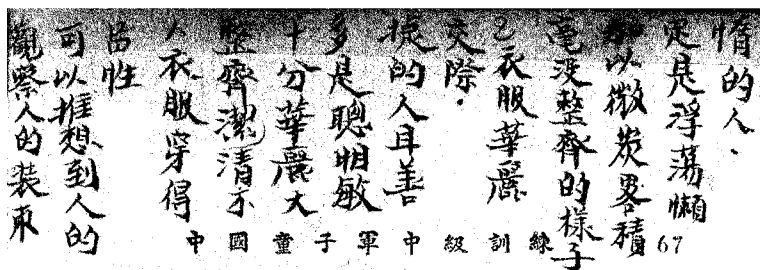 觀察人的裝束
可以推想到人的
性
1衣服穿得
整齊潔清不
十分華麗大
多是聰明敏
捷的人且善
交際.
2衣服華麗
毫没整齊的樣子
加以微炭畧積
定是浮荡懶
惰的人.
中國童子軍中級訓練 67